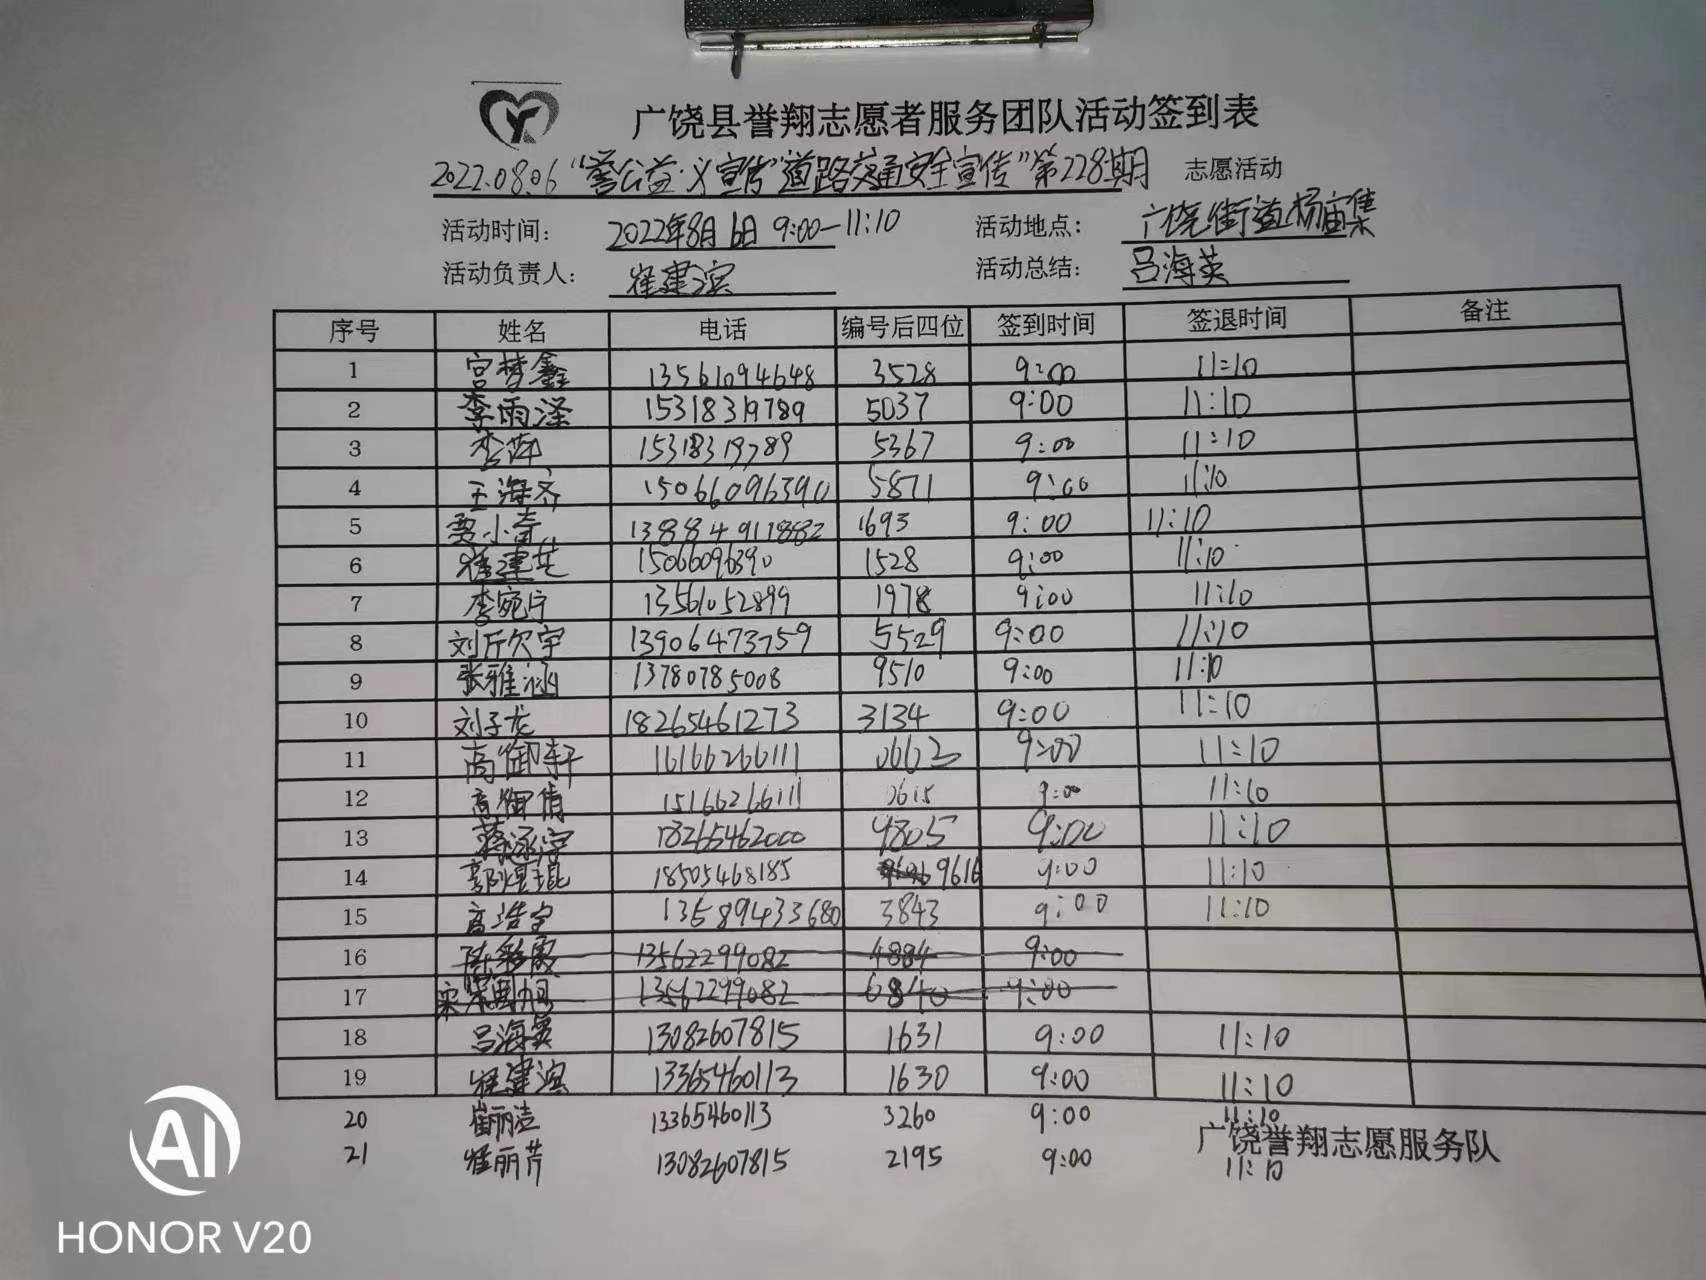 广饶县誉翔志愿者服务团队活动签到表
2022.08.06“誉公益·义宣传”道路交通安全宣传”第228期 志愿活动
活动时间: 2022年8月6日 9:00-11:10 活动地点: 广饶街道杨庙集
活动负责人: 崔建滨 活动总结: 吕海英
序号 姓名 电话 编号后四位 签到时间 签退时间 备注
1 宫梦鑫 13561094648 3528 9:00 11:10
2 李雨泽 15318319789 5037 9:00 11:10
3 李萍 15318319789 5367 9:00 11:10
4 王海齐 15066096390 5871 9:00 11:10
5 小奇 1693 9:00 11:10
6 崔建芝 15066096390 1528 9:00 11:10
7 李宛宁 13561052899 1978 9:00 11:10
8 刘欣宇 13906473759 5529 9:00 11:10
9 张雅涵 13780785008 9510 9:00 11:10
10 刘子龙 18265461273 3134 9:00 11:10
11 高御轩 16166266111 0662 9:00 11:10
12 高御倩 15166266111 0615 9:00 11:10
13 蒋涵宇 18265462000 4805 9:00 11:10
14 郭煜琨 18505468185 9616 9:00 11:10
15 高浩宇 13589433680 3843 9:00 11:10
16 陈彩霞 13562299082 4884 9:00
17 宋 13562299082 6840 9:00
18 吕海英 13082607815 1631 9:00 11:10
19 崔建滨 13365460113 1630 9:00 11:10
20 崔丽洁 13365460113 3260 9:00 11:10
广饶誉翔志愿服务队
21 崔丽芹 13082607815 2195 9:00 11:10
AI
HONOR V20